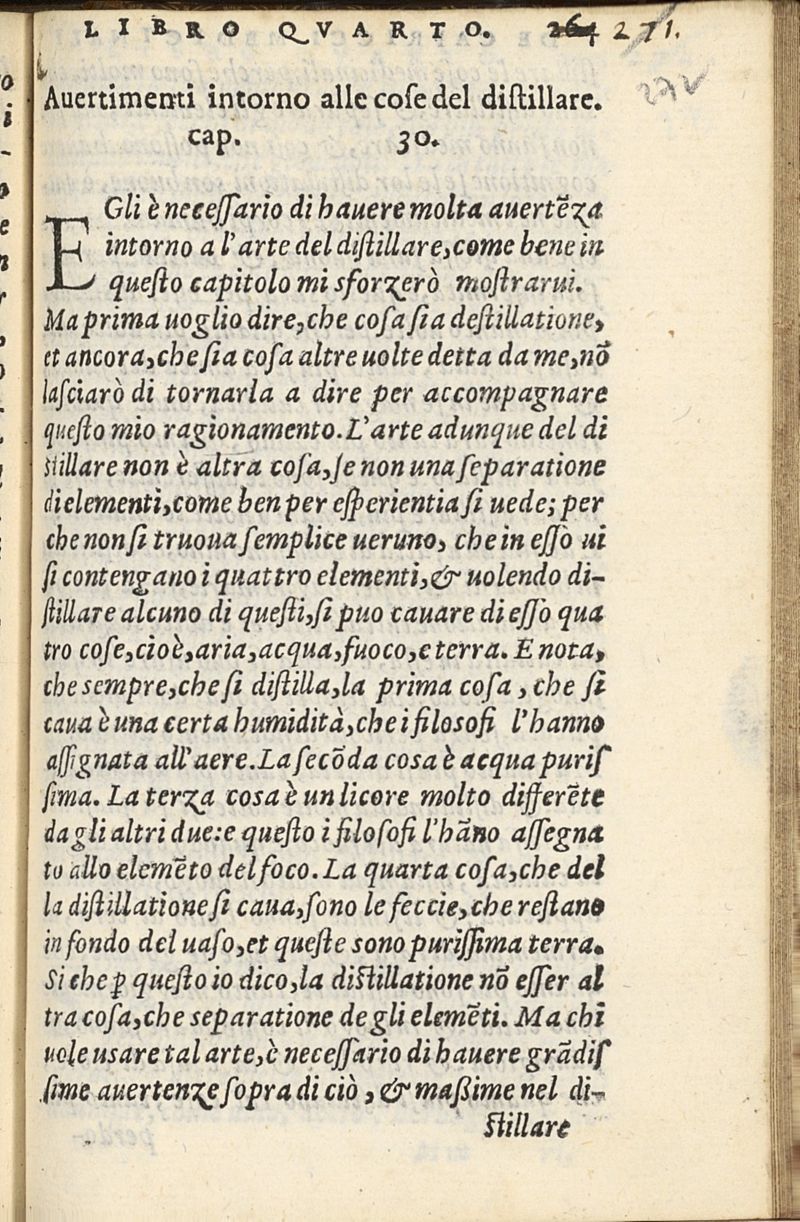 LIBRO QVARTO. 264 271.
272
Auertimenti intorno alle cose del distillare.
cap. 30.
EGli è necessario di hauere molta auertẽza
intorno a l'arte del distillare, come bene in
questo capitolo mi sforzerò mostrarui.
Ma prima uoglio dire, che cosa sia destillatione,
et ancora, che sia cosa altre uolte detta da me, nõ
lasciarò di tornarla a dire per accompagnare
questo mio ragionamento. L'arte adunque del di
stillare non è altra cosa, se non una separatione
di elementi, come ben per esperientia si uede; per
che non si truoua semplice ueruno, che in esso ui
si contengano i quattro elementi, & uolendo di-
stillare alcuno di questi, si puo cauare di esso qua
tro cose, cioè, aria, acqua, fuoco, e terra. E nota,
che sempre, che si distilla, la prima cosa, che si
caua è una certa humidità, che i filosofi l'hanno
assignata all'aere. La secõda cosa è acqua puris
sima. La terza cosa è un licore molto differẽte
da gli altri due: e questo i filosofi l'hãno assegna
to allo elemẽto del foco. La quarta cosa, che del
la distillatione si caua, sono le feccie, che restano
in fondo del uaso, et queste sono purissima terra.
Si che ꝑ questo io dico, la distillatione nõ esser al
tra cosa, che separatione de gli elemẽti. Ma chi
uole usare tal arte, è necessario di hauere grãdis
sime auertenze sopra di ciò, & maßime nel di-
stillare